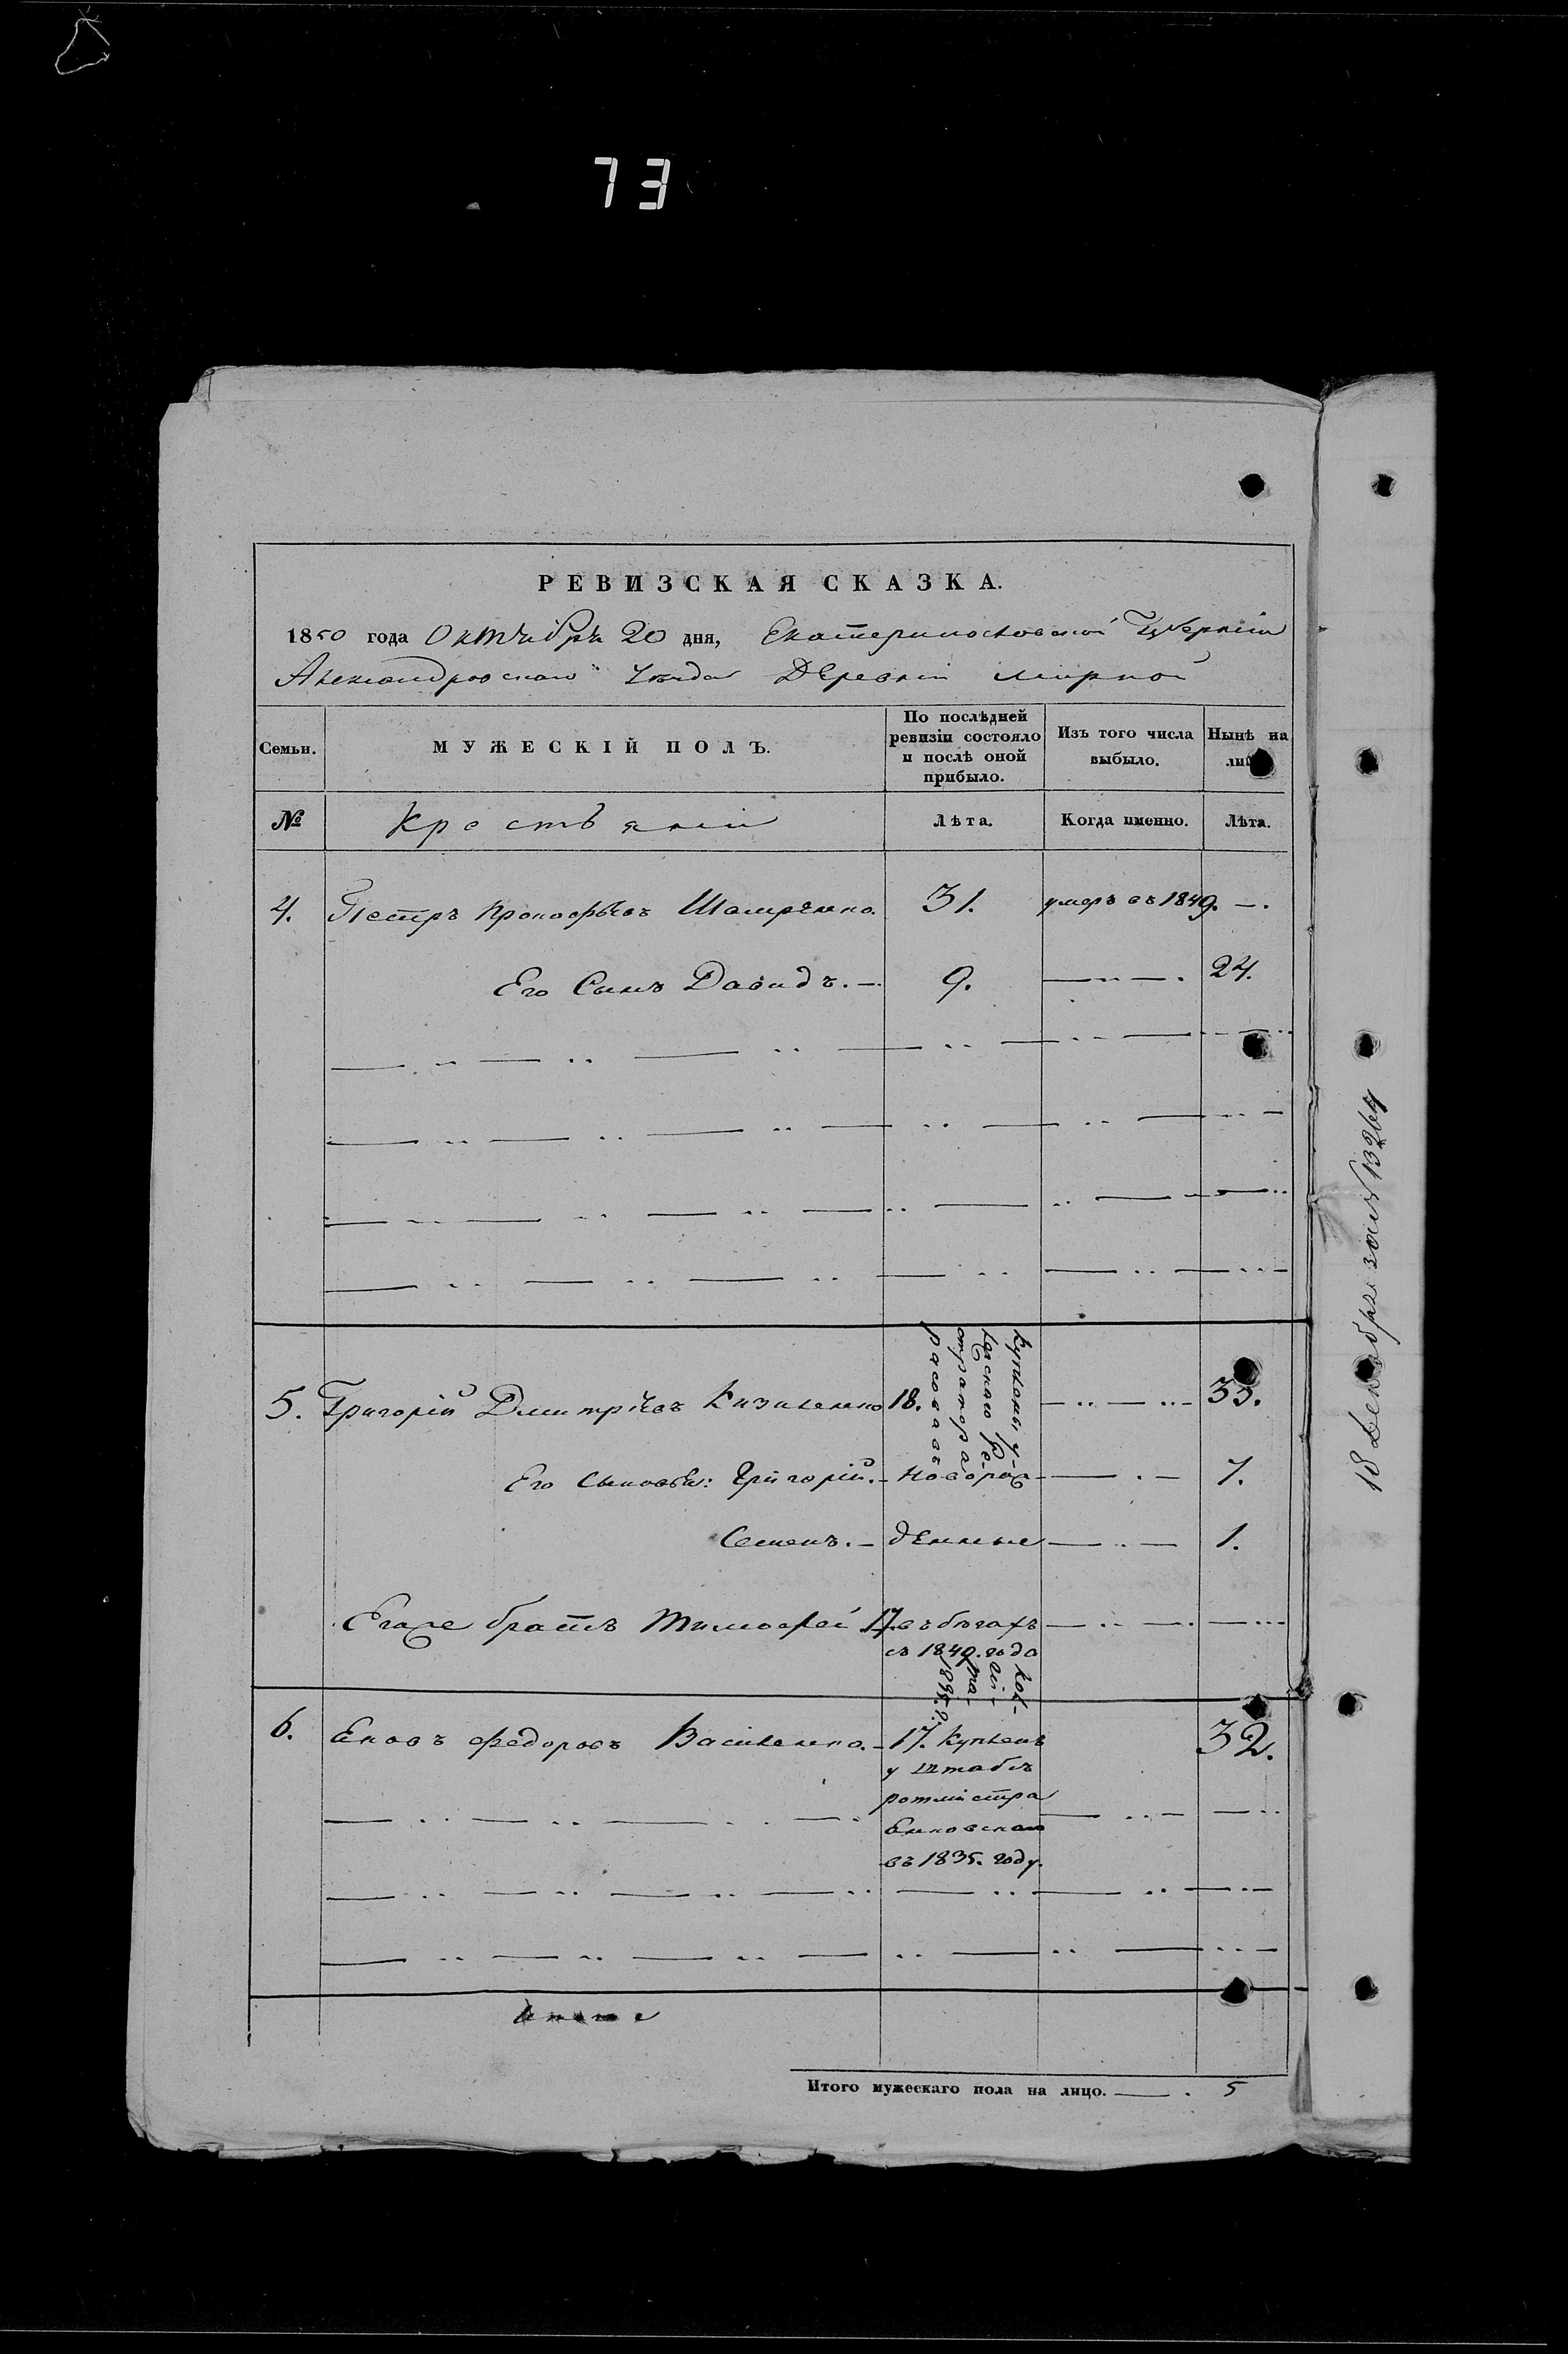 73
РЕВИЗСКАЯ СКАЗКА.
1850 года Октября 20 дня, Екатеринославской Губерніи
Александровскаго уѣзда Деревни Мирной
Семьи.
МУЖЕСКІЙ ПОЛЪ.
По послѣдней ревизіи состояло и послѣ оной прибыло.
Изъ того числа выбыло.
Нынѣ на
№
Крестьяніи
Лѣта.
Когда именно.
Лѣта.
4. Петръ Прокофьевъ 31. умеръ въ 1849. —.
Его Сынъ Давидъ. — 9. — 24.
5. Григорій Дмитріевъ 18. 33.
Его сыновья: Григорій. — новорож- 7.
Семенъ. — денные 1.
Егоже братъ Тимофей 17. въ бѣгахъ
съ 1849. года
Куплены у
6. Яковъ Федоровъ Василенко. — 17. Купленъ 32.
у Штабъ
ротмистра
въ 1835. году.
Итого мужескаго пола на лицо. — . 5
18 Декабря 13264